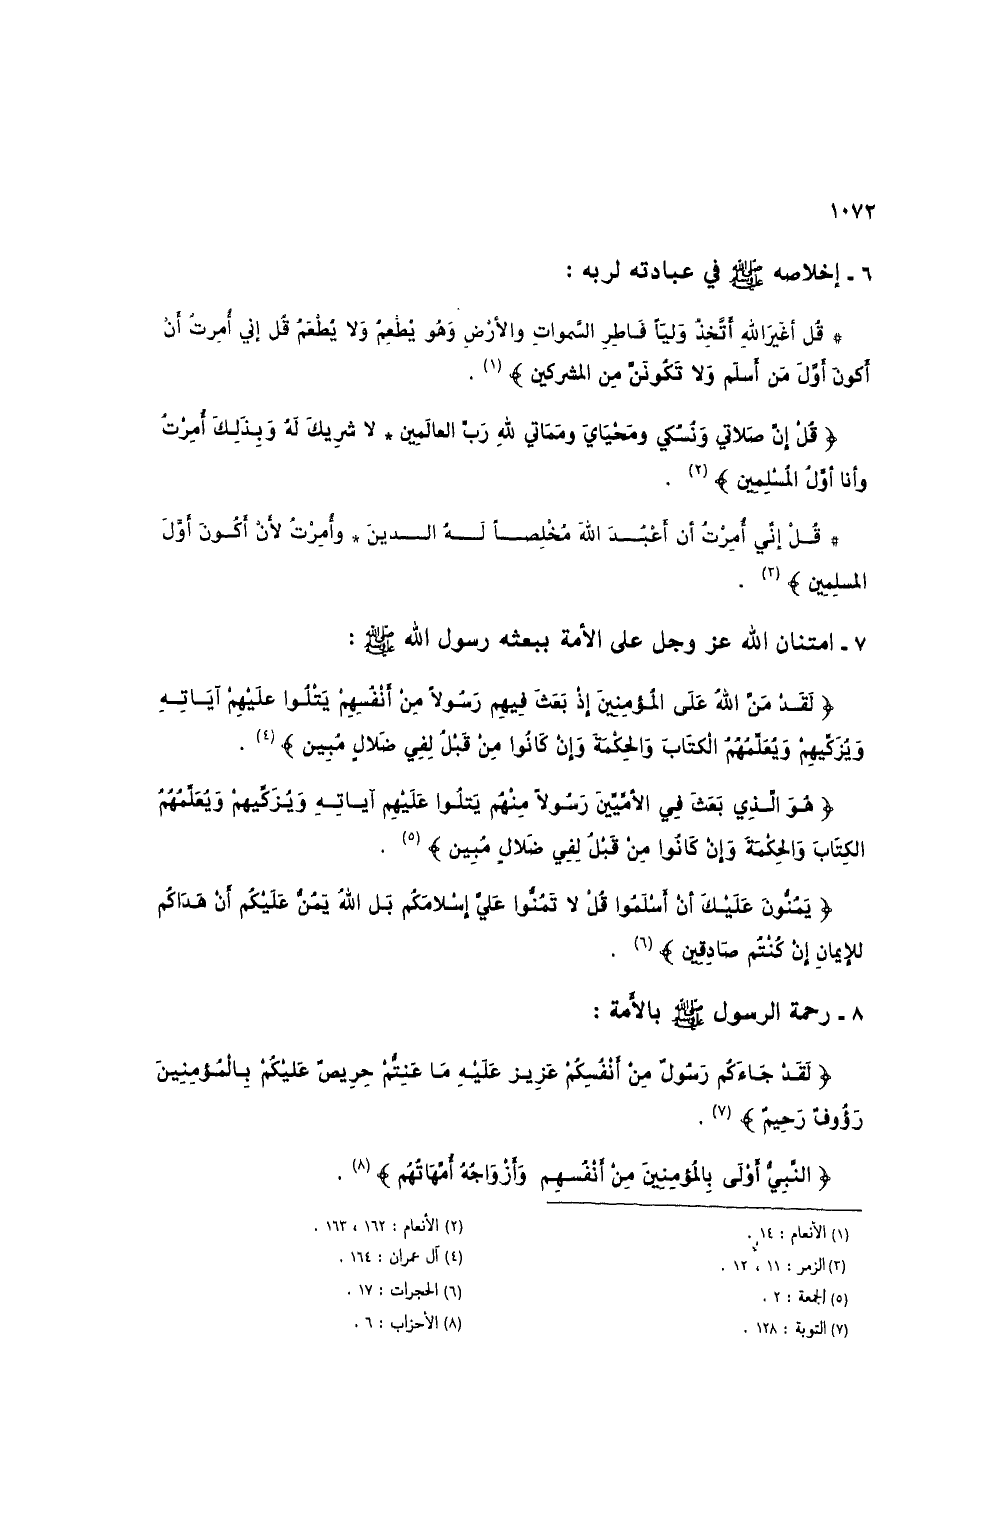 ١٠٧٢
٦ ـ إخلاصه ﷺ في عبادته لربه :
* قُل أغَيرَاللهِ أَتَّخِذُ وَليَاً فَـاطِرِ السَّموات والأرْضِ وَهُو يُطْعِمُ وَلا يُطْعَمُ قُل إني أُمِرتُ أَنْ
أكونَ أوَّلَ مَن أَسلَم وَلا تَكُونَنَّ مِن المشركين ﴾ (١) .
﴿ قُلْ إنَّ صَلاتي وَنُسُكي ومَحْيَايَ ومَمَاتي للهِ رَبِّ العالَمِين * لا شرِيكَ لَهُ وَبِـذَلِـكَ أُمِرْتُ
وأنا أوَّلُ المُسْلِمِين ﴾ (٢) .
* قُــلْ إنّي أُمِرْتُ أن أَعْبُـــدَ اللهَ مُخْلِصـــاً لَـــهُ الــــدينَ * وأُمِرْتُ لأنْ أَكُــونَ أوَّلَ
المسلِمِين ﴾ (٣) .
٧ ـ امتنان الله عز وجل على الأمة ببعثه رسول الله ﷺ :
﴿ لَقَــدْ مَنَّ اللهُ عَلَى المُـؤمِنِينَ إذْ بَعَثَ فِيهِم رَسُـولاً مِنْ أَنْفُسِهِمْ يَتْلُـوا علَيْهِمْ آيَــاتِــهِ
وَيُزَكِّيهِمْ وَيُعَلِّمُهُمُ الْكتَابَ وَالحِكْمَةَ وَإِنْ كَانُوا مِنْ قَبْلُ لَفِي ضَلالٍ مُبِين ﴾ (٤) .
﴿ هُـوَ الَّـذِي بَعَثَ فِي الأمِّيِّينَ رَسُـولاً مِنْهُم يَتلُـوا عَلَيْهِم آيـاتِـهِ وَيُـزَكِّيهمْ وَيُعَلِّمُهُمُ
الكِتَابَ وَالحِكْمَةَ وَإنْ كَانُوا مِنْ قَبْلُ لِفِي ضَلالٍ مُبِين ﴾ (٥) .
﴿ يَمُنُّونَ عَلَيْـكَ أنْ أَسْلَمُوا قُلْ لا تَمُنُّوا عَليَّ إسْلامَكُم بَـل اللهُ يَمُنُّ عَلَيْكُم أَنْ هَـدَاكُم
للإيمانِ إنْ كُنْتُم صَادِقِين ﴾ (٦) .
٨ ـ رحمة الرسول ﷺ بالأَمة :
﴿ لَقَـدْ جَـاءَكُم رَسُولٌ مِنْ أَنْفُسِكُمْ عَزِيـز عَلَيْـهِ مَـا عَنِتُّمْ حرِيصٌ عَليْكُمْ بِـالْمُـؤمِنِينَ
رَؤُوفٌ رَحِيمٌ ﴾ (٧) .
﴿ النَّبِيُّ أَوْلَى بِالمُؤمِنِينَ مِنْ أَنْفُسهِم وَأَزْوَاجُهُ أُمَّهَاتُهُم ﴾ (٨) .
(١) الأنعام : ١٤ .
(٢) الأنعام : ١٦٢ ، ١٦٣ .
(٣) الزمر : ١١ ، ١٢ .
(٤) آل عمران : ١٦٤ .
(٥) الجمعة : ٢ .
(٦) الحجرات : ١٧ .
(٧) التوبة : ١٢٨ .
(٨) الأحزاب : ٦ .